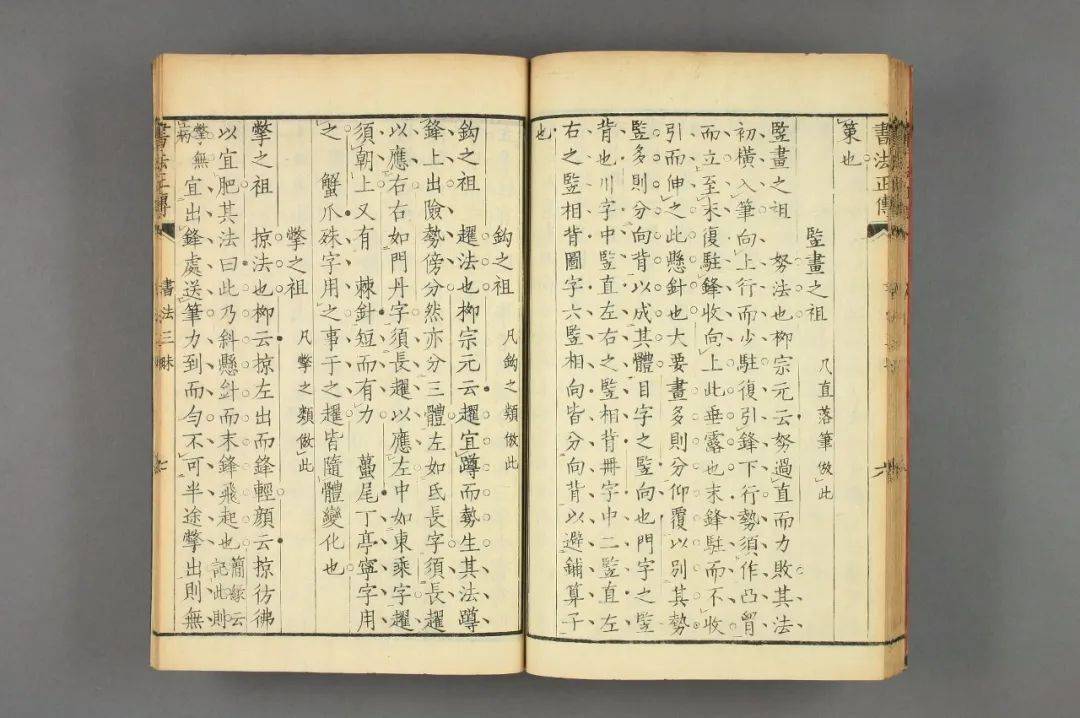 書法正傳
第也
監畫之祖 凡直落筆倣此
監畫之祖 努法也柳宗元云努過直而力敗其法
初橫入筆向上行而少駐復引鋒下行勢須作凸胷
而立至末復駐鋒收向上此垂露也末鋒駐而不收
引而伸之此懸針也大要畫多則分仰覆以別其勢
監多則分向背以成其體目字之監向也門字之監
背也川字中監直左右之監相背冊字中二監直左
右之監相背圖字六監相向皆分向背以避鋪算子
也
鈎之祖 凡鈎之類倣此
鈎之祖 趯法也柳宗元云趯宜蹲而勢生其法蹲
鋒上出險勢傍分然亦分三體左如氐長字須長趯
以應右右如門丹字須長趯以應左中如東乘字趯
須朝上又有 棘針短而有力 蠆尾丁亭寧字用
之 蟹爪殊字用之事于之趯皆隨體變化也
撆之祖 凡撆之類倣此
撆之祖 掠法也柳云掠左出而鋒輕顏云掠彷彿
以宜肥其法曰此乃斜懸針而末鋒飛起也簡緣云記此則
撆無病宜出鋒處送筆力到而勻不可半途撆出則無
書法正傳 書法三昧 七